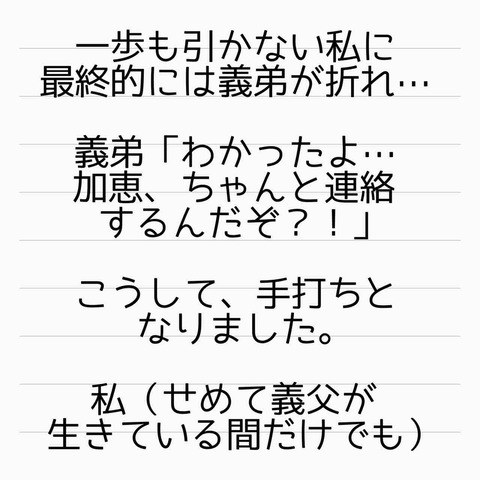 一歩も引かない私に
最終的には義弟が折れ…
義弟「わかったよ…
加恵、ちゃんと連絡
するんだぞ？！」
こうして、手打ちと
なりました。
私（せめて義父が
生きている間だけでも）